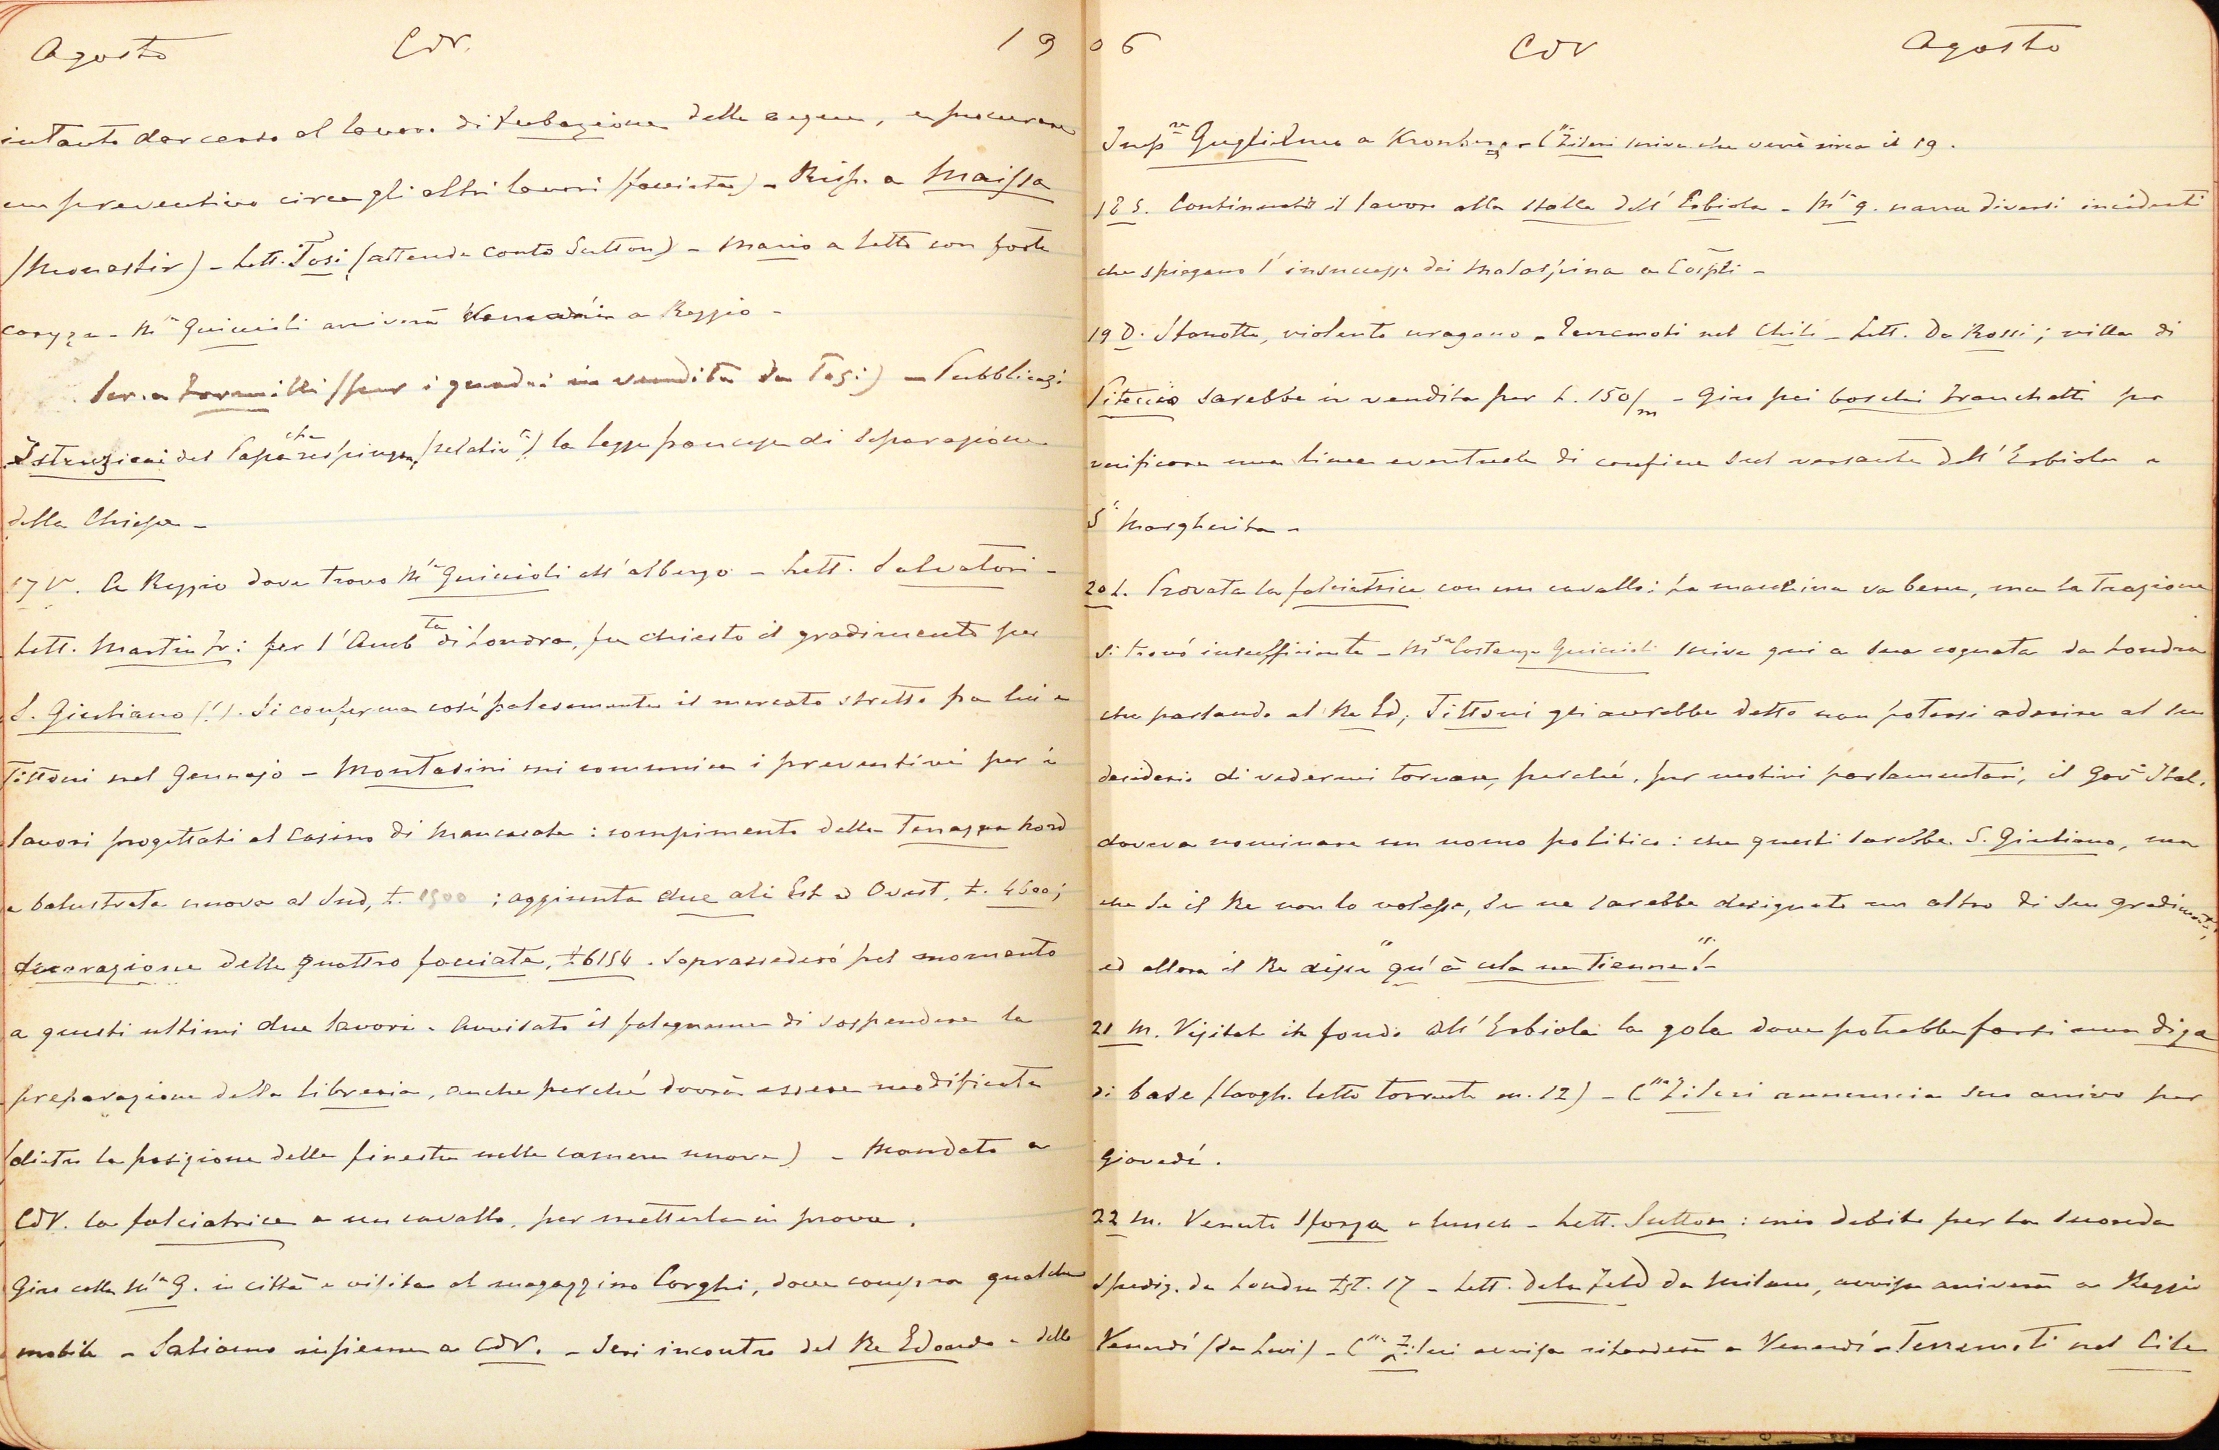 Agosto CdV. 19
intanto dar corso al lavoro di tubazione delle acque, e procurare
un preventivo circa gli altri lavori (facciata) - Risp. a Maissa
(Monastir) - Lett. Tosi (attende conto Sutton) - Mario a letto con forte
coryza - Mⁿᵃ Guiccioli arriverà domani a Reggio -
Scr. a Formilli (per i quadri in vendita da Tosi) - Pubblicaz.
Istruzioni del Papa che respinge (relativᵉ) la legge francese di separazione
della Chiesa -
17 V. A Reggio dove trovo Mˢᵃ Guiccioli all'albergo - Lett. Salvatori -
Lett. Martin Fr: per l'Ambᵗᵃ di Londra, fu chiesto il gradimento per
S. Giuliano (!). Si conferma così palesemente il mercato stretto fra lui e
Tittoni nel Gennajo - Montasini mi comunica i preventivi per i
lavori progettati al Casino di Mancasale: compimento della Terrazza Nord
e balustrata nuova al Sud, £. 1500 ; aggiunta due ali Est e Ovest, £. 4600;
decorazione delle quattro facciate, £ 6154. Soprassederò pel momento
a questi ultimi due lavori. Avvisato il falegname di sospendere la
preparazione della libreria, anche perché dovrà essere modificata
(dietro la posizione delle finestre nelle camere nuove) - Mandato a
CdV. la falciatrice a un cavallo, per metterla in prova.
Giro colla Mˢᵃ G. in città e visita al magazzino Corghi, dove compra qualche
mobile - Saliamo insieme a CdV. - Ieri incontro del Re Edoardo e dello
06 CdV Agosto
Impʳᵉ Guglielmo a Kronberg - Cᵗᵉ Zileri scrive che verrà circa il 19.
18 S. Continuato il lavoro alla stalla dell'Erbiola - Mˢᵃ G. narra diversi incidenti
che spiegano l'insuccesso dei Malaspina a Cospli -
19 D. Stanotte, violento uragano - Terremoti nel Chilì - Lett. De Rossi; villa di
Piteccio sarebbe in vendita per L. 150/m - Giro pei boschi Franchetti per
verificare una linea eventuale di confine sul versante dell'Erbiola e
Sᵃ Margherita -
20 L. Provata la falciatrice con un cavallo: la macchina va bene, ma la trazione
si trovò insufficiente - Mˢᵃ Costanza Guiccioli scrive qui a sua cognata da Londra
che parlando al Re Ed, Tittoni gli avrebbe detto non potersi aderire al suo
desiderio di vedermi tornare, perché, per motivi parlamentari, il Govᵒ Ital.
doveva nominare un uomo politico: che questi sarebbe S. Giuliano, ma
che se il Re non lo volesse, se ne sarebbe designato un altro di suo gradimento,
ed allora il Re disse "qu'à cela ne tienne"! -
21 M. Visitato in fondo all'Erbiola la gola dove potrebbe farsi una diga
di base (largh. letto torrente m. 12) - Cᵗᵉ Zileri annuncia suo arrivo per
Giovedì.
22 M. Venuto Sforza a lunch - Lett. Sutton: mio debito per la seconda
spediz. da Londra £st. 17 - Lett. Dela Feld da Milano, avvisa arriverà a Reggio
Venerdì (da Levi) - Cᵗᵉ Zileri avvisa ritarderà a Venerdì - Terremoti nel Cile